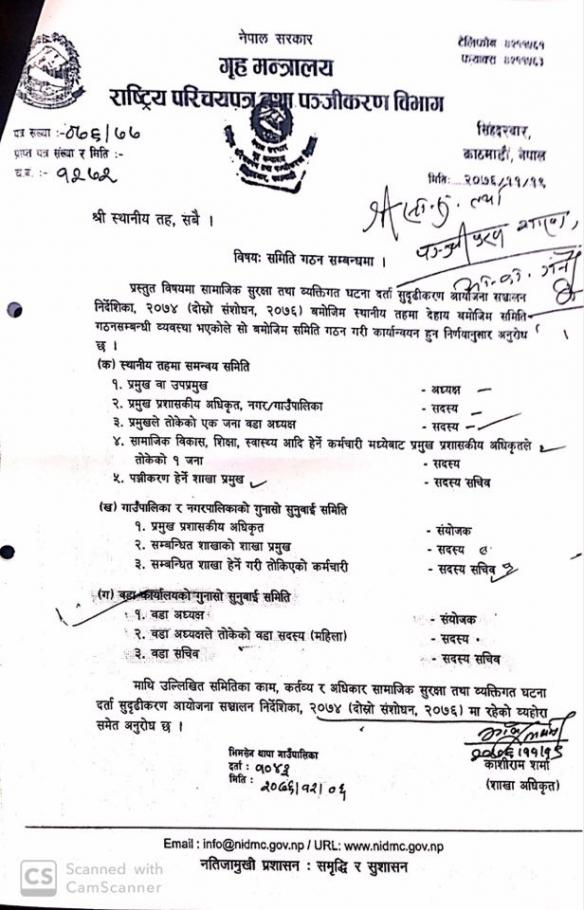 नेपाल सरकार
गृह मन्त्रालय
राष्ट्रिय परिचयपत्र तथा पञ्जीकरण विभाग
टेलिफोन ४२११७८१
फ्याक्स ४२११७८३
पत्र संख्या :-०७६/७७
प्राप्त पत्र संख्या र मिति :-
च.नं. :- १२७२
सिंहदरबार,
काठमाडौं, नेपाल
मिति: २०७६/११/१९
श्री स्थानीय तह, सबै ।
विषय: समिति गठन सम्बन्धमा ।
प्रस्तुत विषयमा सामाजिक सुरक्षा तथा व्यक्तिगत घटना दर्ता सुदृढीकरण आयोजना सञ्चालन
निर्देशिका, २०७४ (दोस्रो संशोधन, २०७६) बमोजिम स्थानीय तहमा देहाय बमोजिम समिति
गठनसम्बन्धी व्यवस्था भएकोले सो बमोजिम समिति गठन गरी कार्यान्वयन हुन निर्णयानुसार अनुरोध
छ ।
(क) स्थानीय तहमा समन्वय समिति
१. प्रमुख वा उपप्रमुख - अध्यक्ष
२. प्रमुख प्रशासकीय अधिकृत, नगर/गाउँपालिका - सदस्य
३. प्रमुखले तोकेको एक जना वडा अध्यक्ष - सदस्य
४. सामाजिक विकास, शिक्षा, स्वास्थ्य आदि हेर्ने कर्मचारी मध्येबाट प्रमुख प्रशासकीय अधिकृतले
तोकेको १ जना - सदस्य
५. पञ्जीकरण हेर्ने शाखा प्रमुख - सदस्य सचिव
(ख) गाउँपालिका र नगरपालिकाको गुनासो सुनुवाई समिति
१. प्रमुख प्रशासकीय अधिकृत - संयोजक
२. सम्बन्धित शाखाको शाखा प्रमुख - सदस्य
३. सम्बन्धित शाखा हेर्ने गरी तोकिएको कर्मचारी - सदस्य सचिव
(ग) वडा कार्यालयको गुनासो सुनुबाई समिति
१. वडा अध्यक्ष - संयोजक
२. वडा अध्यक्षले तोकेको वडा सदस्य (महिला) - सदस्य
३. वडा सचिव - सदस्य सचिव
माथि उल्लिखित समितिका काम, कर्तव्य र अधिकार सामाजिक सुरक्षा तथा व्यक्तिगत घटना
दर्ता सुदृढीकरण आयोजना सञ्चालन निर्देशिका, २०७४ (दोस्रो संशोधन, २०७६) मा रहेको व्यहोरा
समेत अनुरोध छ ।
२०७६/११/१९
काशीराम शर्मा
(शाखा अधिकृत)
भिमसेन थापा गाउँपालिका
दर्ता : १०४३
मिति : २०७६/१२/०६
Email : info@nidmc.gov.np / URL: www.nidmc.gov.np
नतिजामुखी प्रशासन : समृद्धि र सुशासन
CS Scanned with
CamScanner